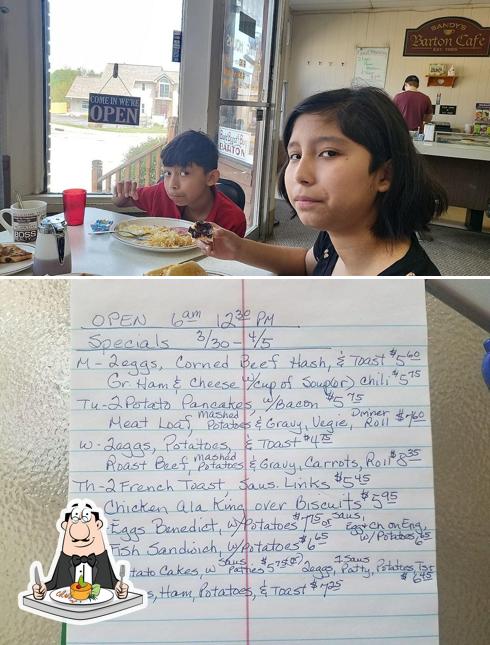 SANDY'S
Barton Cafe
EST. 1983
COME IN WE'RE
OPEN
BARTON
BOSS
OPEN 6am 12 30 PM
Specials 3/30 - 4/5
M - 2 eggs, Corned Beef Hash, & Toast $5 60
Gr. Ham & Cheese w/cup of Soup(or) Chili $5 75
Tu - 2 Potato Pancakes w/Bacon $5 75
Meat Loaf, mashed Potatoes & Gravy, Vegie, Dinner Roll $7 60
W - 2 eggs, Potatoes, & Toast $4 75
Roast Beef, mashed Potatoes & Gravy, Carrots, Roll $8 35
Th - 2 French Toast, Saus. Links $5 45
Chicken Ala King over Biscuits $5 95
Eggs Benedict, w/Potatoes $7 15 or Saus, Egg & Ch on Eng, w/Potatoes
Fish Sandwich, w/Potatoes $6 65
tato Cakes, w Saus Patties 2 eggs, 1 Saus Patty, Potatoes, Tst $6 45
s, Ham, Potatoes, & Toast $7 25